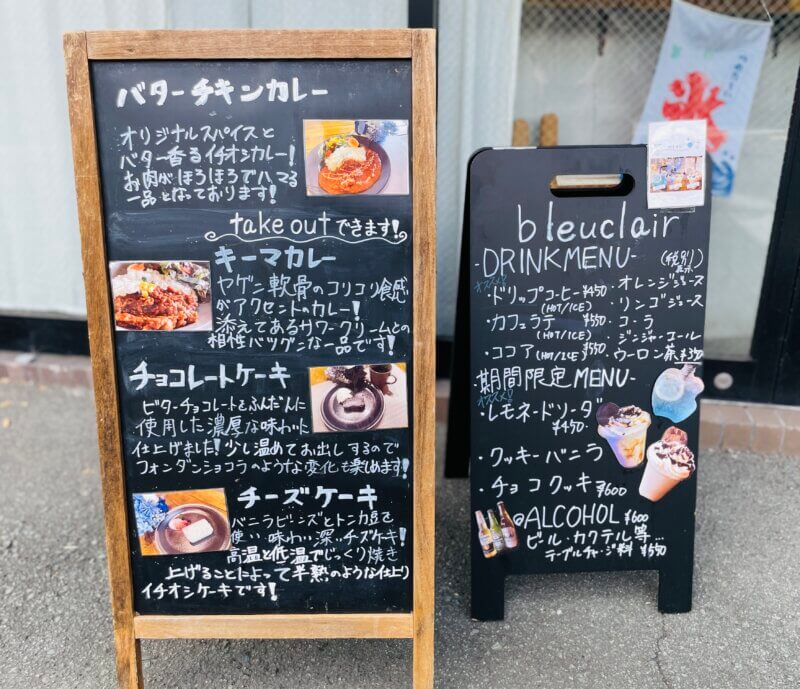 バターチキンカレー
オリジナルスパイスと
バター香るイチオシカレー!
お肉がほろほろでハマる
一品となっております!
take outできます!
キーマカレー
ヤゲン軟骨のコリコリ食感
がアクセントのカレー!
添えてあるサワークリームとの
相性バツグンな一品です!
チョコレートケーキ
ビターチョコレートをふんだんに
使用した濃厚な味わいに
仕上げました!少し温めてお出しするので
フォンダンショコラのような変化も楽しめます!
チーズケーキ
バニラビーンズとトンカ豆を
使い味わい深いチーズケーキ!
高温と低温でじっくり焼き
上げることによって半熟のような仕上り
イチオシケーキです!
氷
bleuclair
-DRINK MENU- (税別)
オススメ!!
・ドリップコーヒー ¥450
(HOT/ICE)
・カフェラテ ¥550
(HOT/ICE)
・ココア(HOT/ICE) ¥550
・オレンジジュース
・リンゴジュース
・コーラ
・ジンジャーエール
・ウーロン茶 ¥350
-期間限定MENU-
オススメ!!
・レモネードソーダ
¥450
・クッキーバニラ
・チョコクッキー ¥600
@ALCOHOL ¥600
ビール・カクテル等...
テーブルチャージ料 ¥550